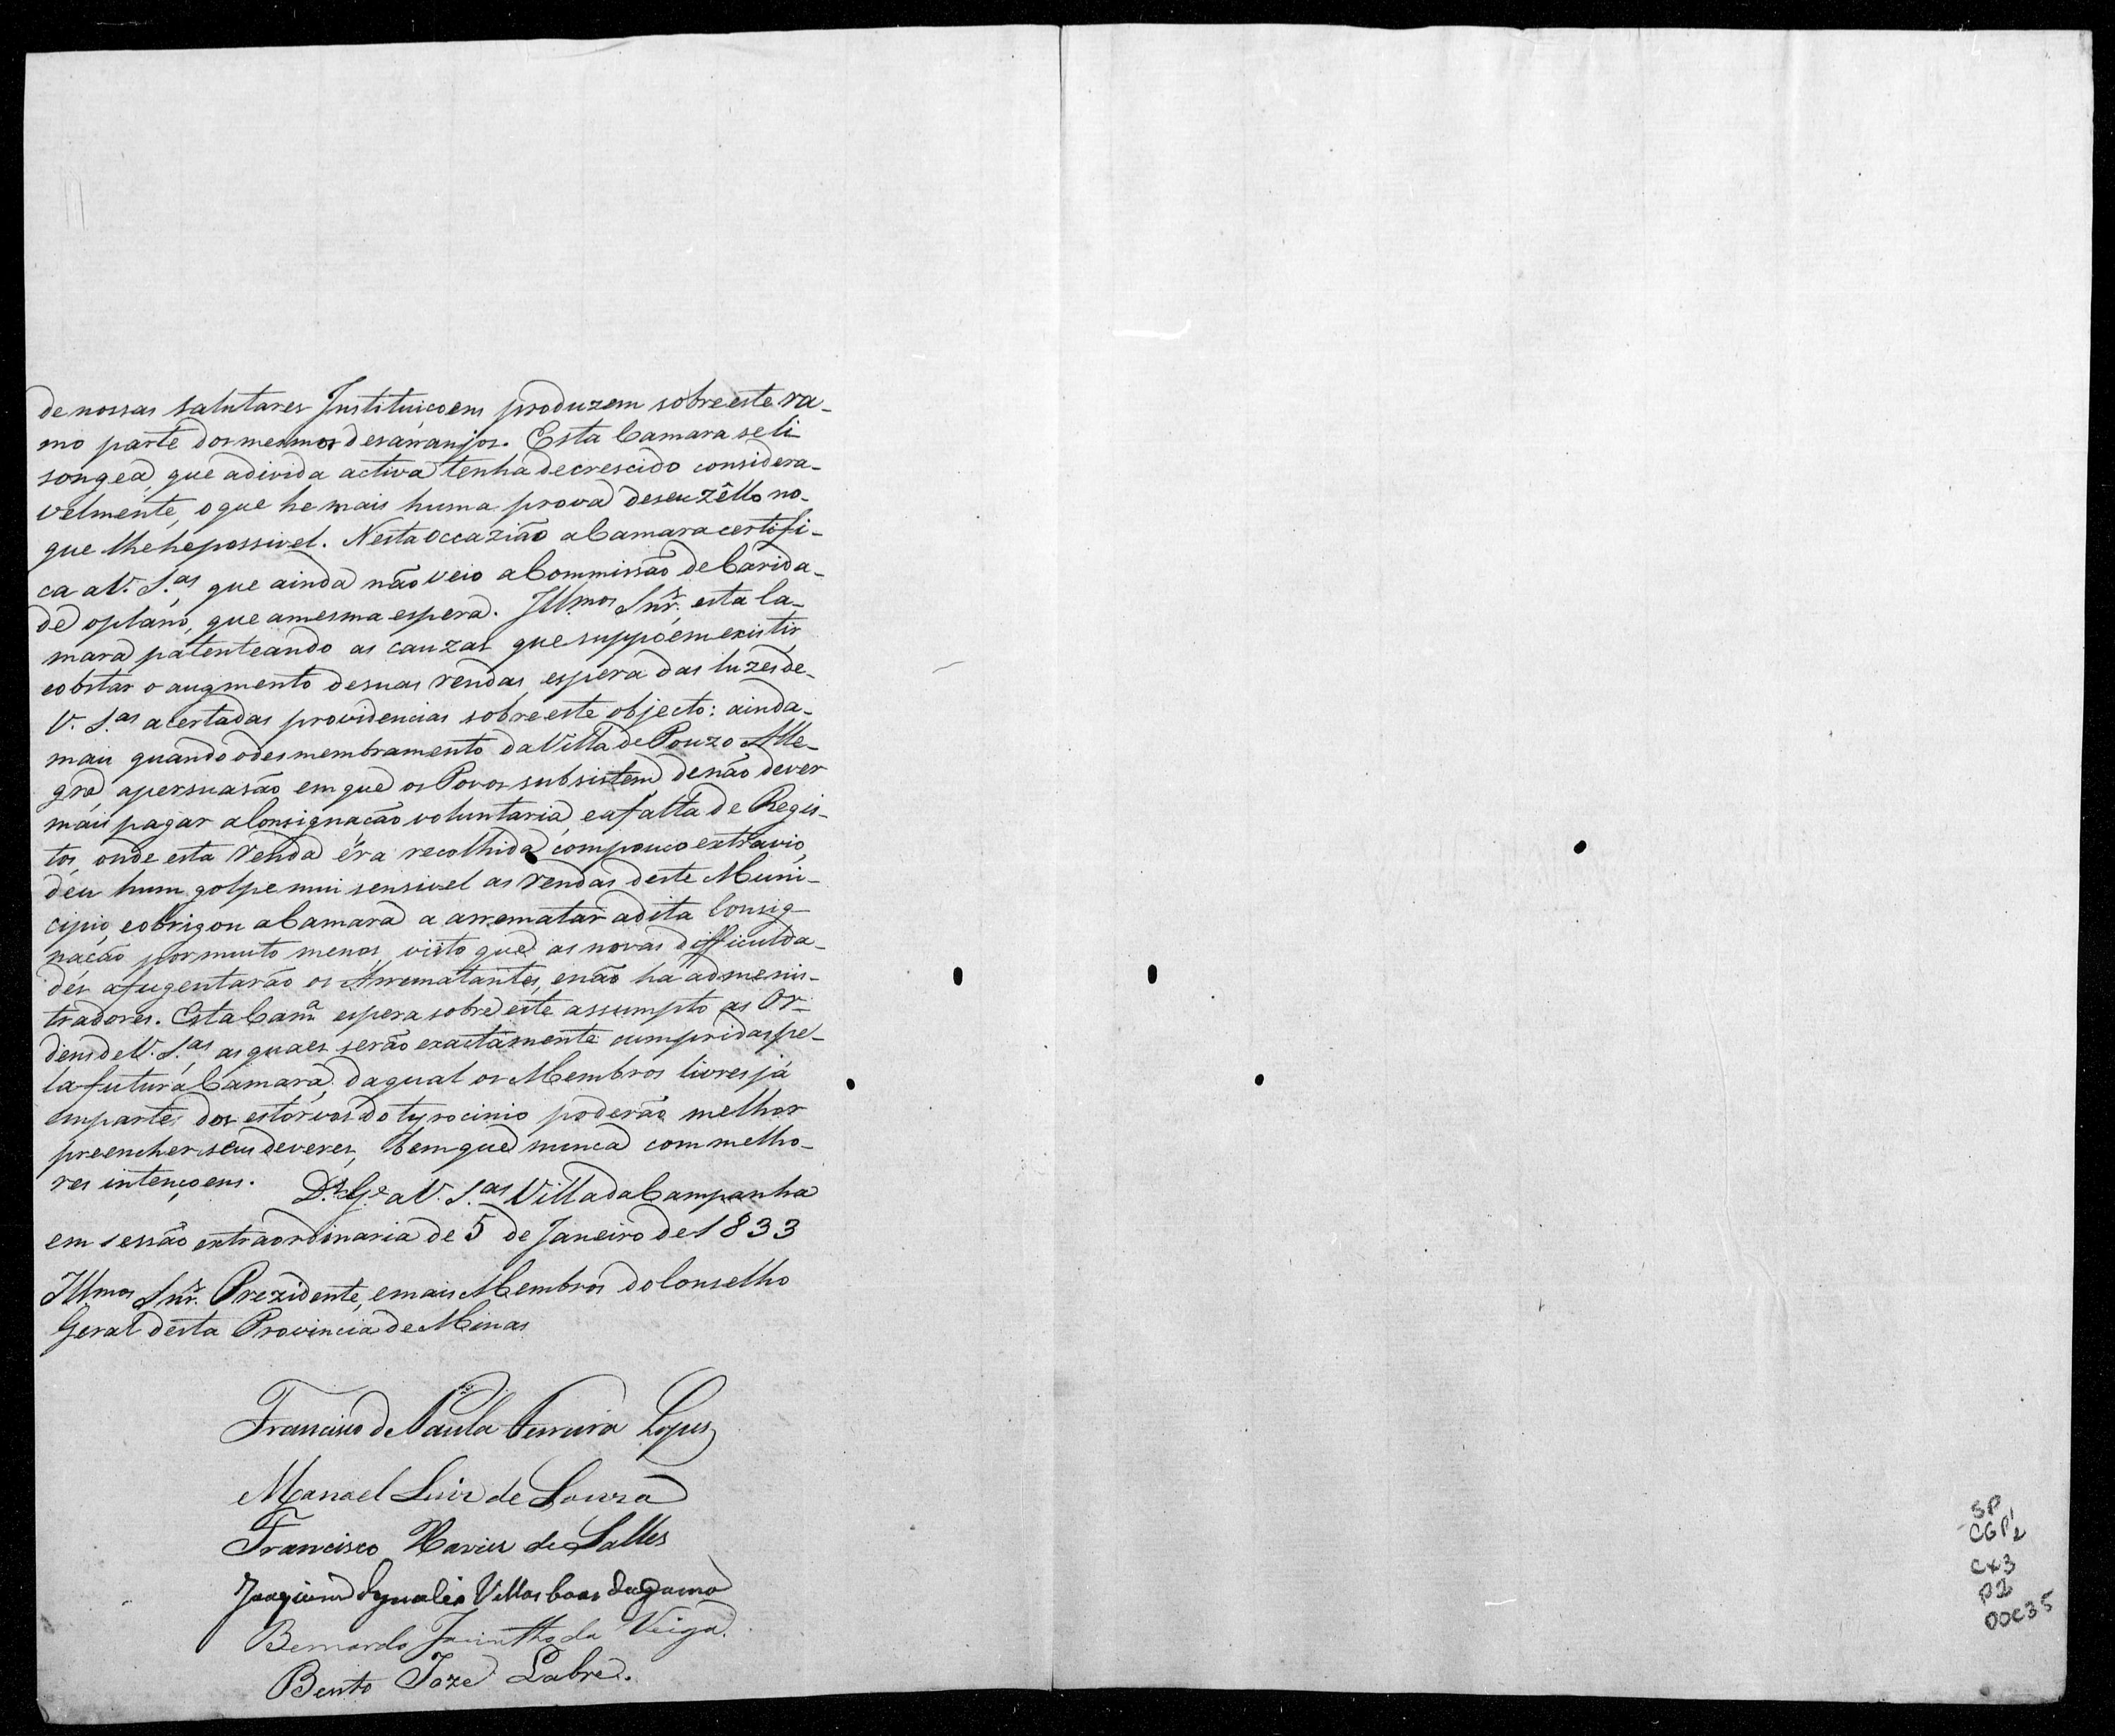 de nossas salutares Instituiçoens produzem sobre este ra-
mo parte dos mesmos desarranjos. Esta Camara se li
songea, que a divida activa tenha decrescido considera-
velmente, o que he mais huma prova de seu zêllo no-
que lhe he possivel. Nesta occazião a Camara certifi-
ca a V. S.as que ainda não veio a Commissão de Carida-
de o plano, que a mesma espera. Ill.mos Snr.s esta Ca-
mara patenteando as cauzas que suppoem existir,
e obstar o augmento de suas rendas, espera das luzes de-
V. S.as acertadas providencias sobre este objecto: ainda-
mais quando o desmembramento da Villa de Pouzo Alle-
gre, a persuasão em que os Povos subsistem de não dever
mais pagar a Consignação voluntaria, e a falta de Regis-
tos, onde esta renda éra recolhida com pouco extravio,
deu hum golpe mui sensivel as rendas deste Muni-
cipio, e obrigou a Camara a arrematar a dita Consig-
nação por muito menos, visto que as novas difficulda-
des afugentarão os Arrematantes, e não ha admenis-
tradores. Esta Cam.a espera sobre este assumpto as Or-
dens de V. S.as, as quaes serão exactamente cumpridas pe-
la futura Camara, da qual os Membros livres já
em parte dos estorvos do tyrocinio poderão melhor
preencher seus deveres, bem que nunca com melho-
res intençoens. D.s G.e a V. S.as Villa da Campanha
em sessão extraordinaria de 5 de Janeiro de 1833
Ill.mos Snr.s Prezidente, e mais Membros do Conselho
Geral desta Provincia de Minas
Francisco de Paula Ferreira Lopes
Manoel Luiz de Souza
Francisco Xavier de Salles
Joaquim Ignacio Villas boas da gama
Bernardo Jacintho da Veiga.
Bento Joze Labre.
SP
CGP1/2
CX3
P2
DOC35